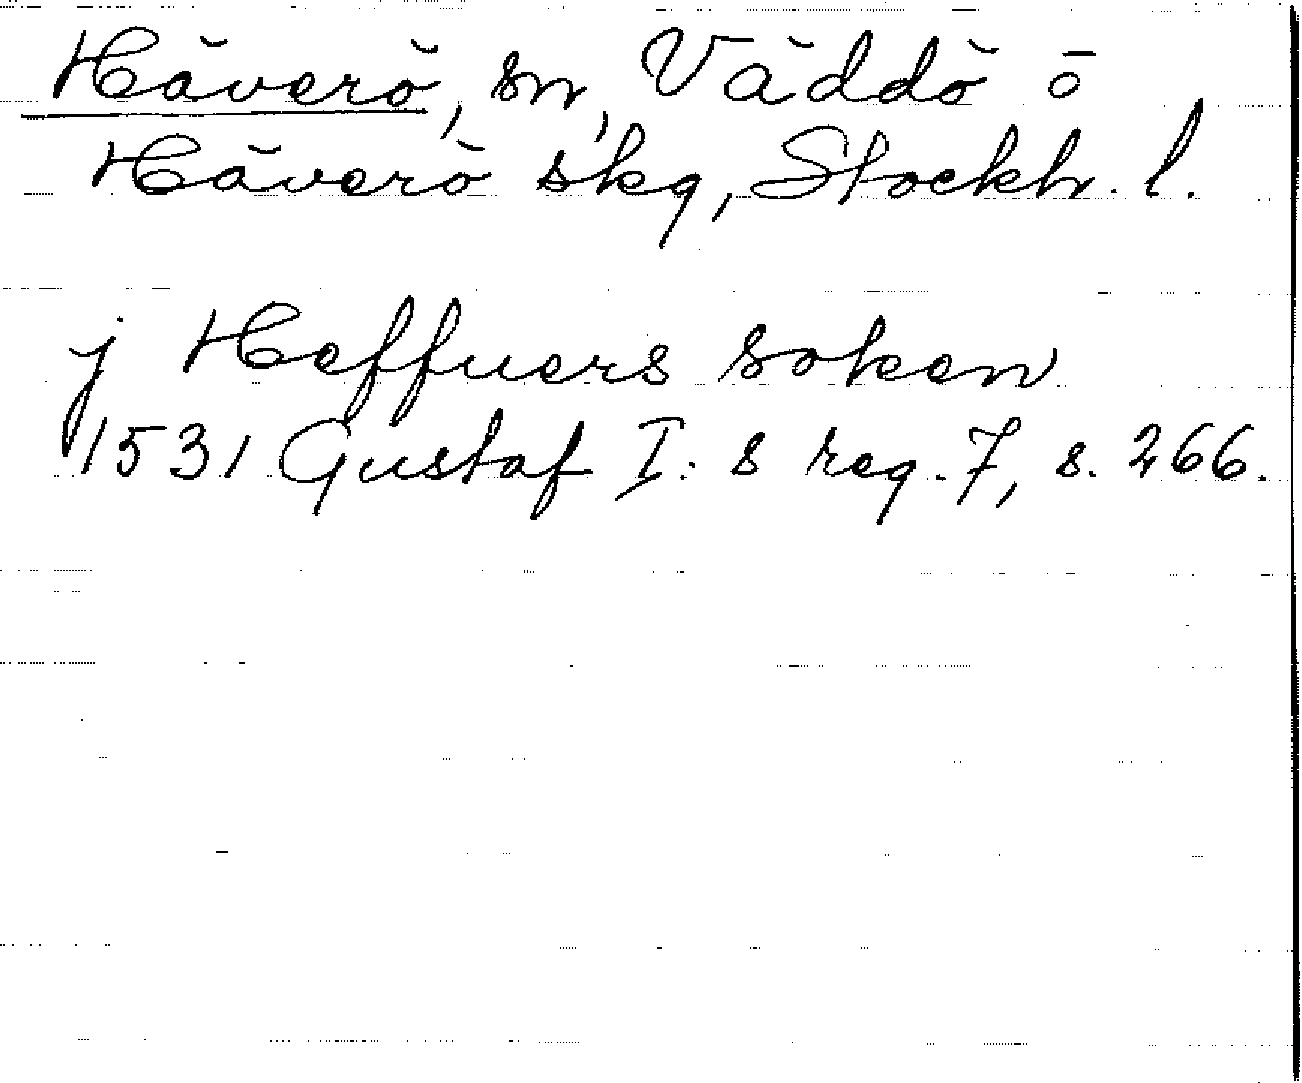 Häverö, sn, Väddö o
Häverö skg, Stockh. l.
j Heffuers soken
1531 Gustaf I:s reg. 7, s. 266.